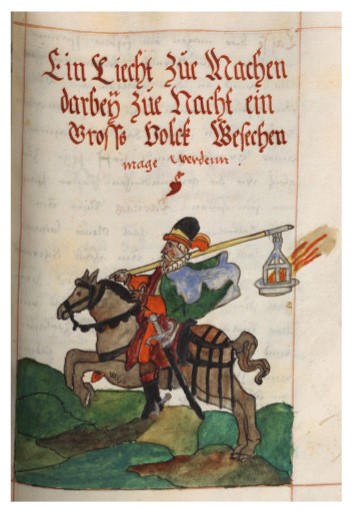 Ein Liecht Züe Machen
darbeÿ Züe Nacht ein
Gross Volck Besechen
mage werdenn